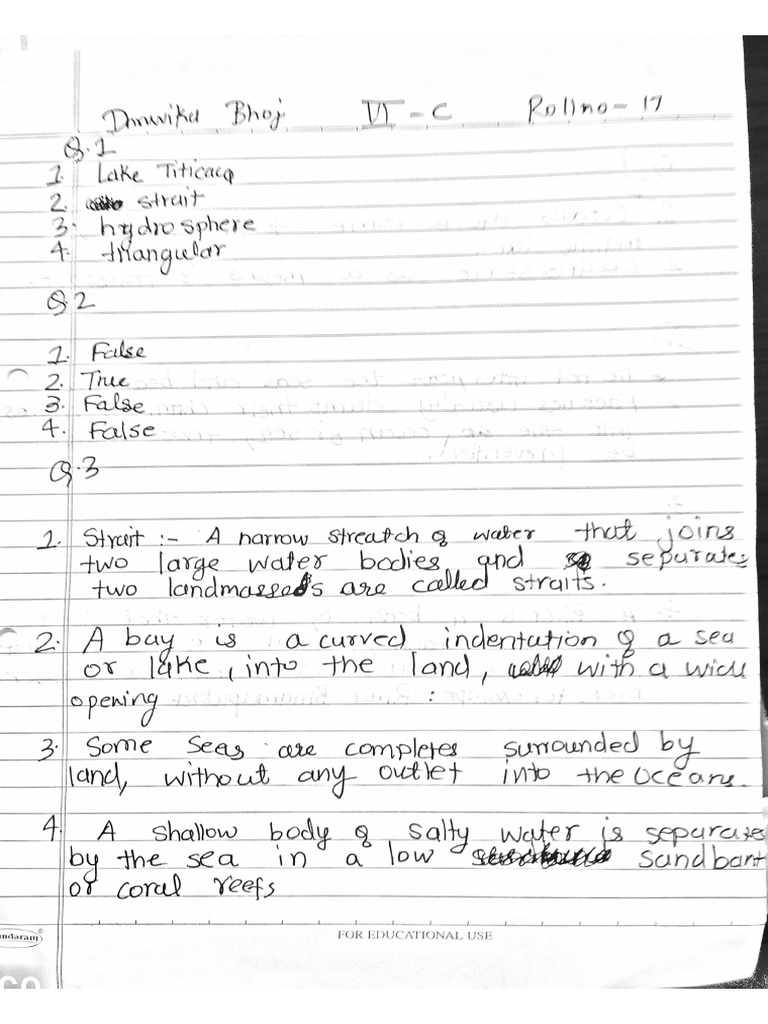 Bhoj VI - C Rollno - 17
Q.1
1. Lake Titicaca
2. strait
3. hydrosphere
4. triangular
Q2
1. False
2. True
3. False
4. False
Q.3
1. Strait :- A narrow streatch of water that joins
two large water bodies and separates
two landmasses are called straits.
2. A bay is a curved indentation of a sea
or lake, into the land, with a wide
opening :
3. Some seas are completes surrounded by
land, without any outlet into the oceans.
4. A shallow body of salty water is separates
by the sea in a low sandbart
or coral reefs
ndaram
FOR EDUCATIONAL USE